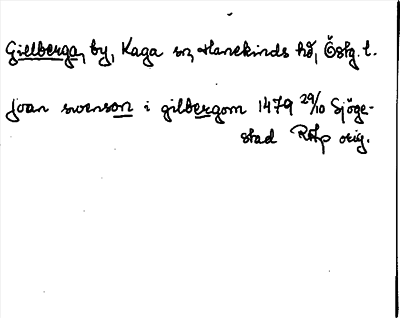 Gillberga, by, Kaga sn, Hanekinds hd, Östg. l.
Joan swenson i gilbergom 1479 29/10 Sjöge-
stad RAp orig.